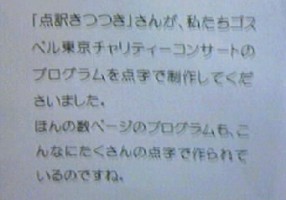 「点訳きつつき」さんが、私たちゴス
ペル東京チャリティーコンサートの
プログラムを点字で制作してくだ
さいました。
ほんの数ページのプログラムも、こ
んなにたくさんの点字で作られて
いるのですね。